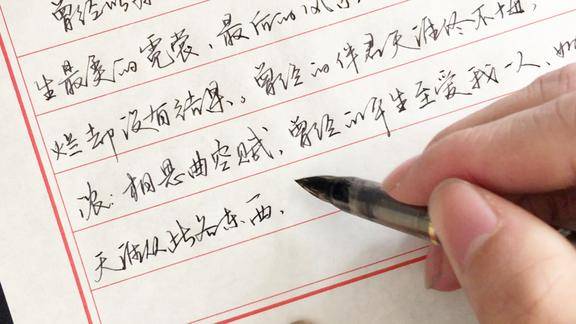 曾经的
生最美的霓裳、最后的
烂却没有结果、。曾经的伴君天涯终不悔,
浪:相思曲空赋,曾经的年生至爱我一人、如
天涯从此各东西、